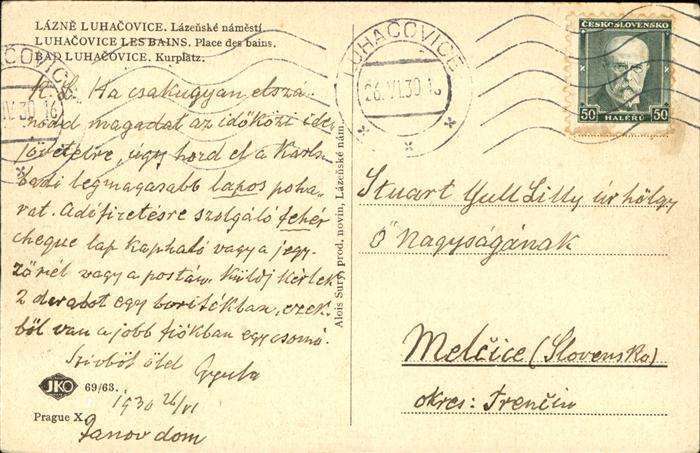 LÁZNĚ LUHAČOVICE. Lázeňské náměstí
LUHAČOVICE LES BAINS. Place des bains.
BAD LUHAČOVICE. Kurplatz.
K. B. Ha csakugyan elszá-
nod magadat az időközi ide-
jövetelre, úgy hord el a Karls-
badi legmagasabb lapos poha-
rat. Adófizetésre szolgáló fehér
cheque lap kapható vagy a jegy-
zőnél vagy a postán. Küldj kérlek
2 darabot egy borítékban, ezek-
ből van a jobb fiókban egy csomó.
Szivből ölel Gyula
1930 26/VI
Janov dom
JKO 69/63.
Prague X.
Alois Surý, prod. novin, Lázeňské nám.
LUHAČOVICE
26.VI.30
ČESKOSLOVENSKO
50 HALÉŘŮ 50
Stuart Yull Lilly úrhölgy
Ő Nagyságának
Melčice (Slovensko)
okres: Trenčín